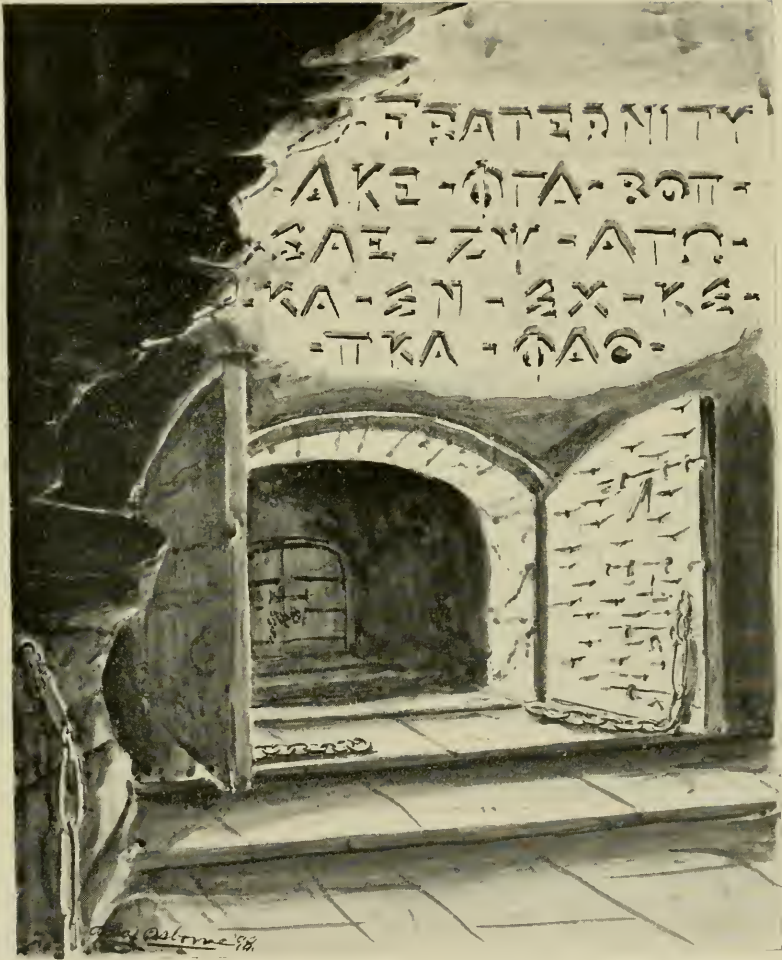 FRATERNITY
-ΔΚΕ-ΦΓΔ-ΒΘΠ-
ΣΑΕ-ΖΨ-ΑΤΩ-
ΚΑ-ΣΝ-ΣΧ-ΚΣ-
-ΠΚΑ-ΦΔΘ-
Osborne '98.